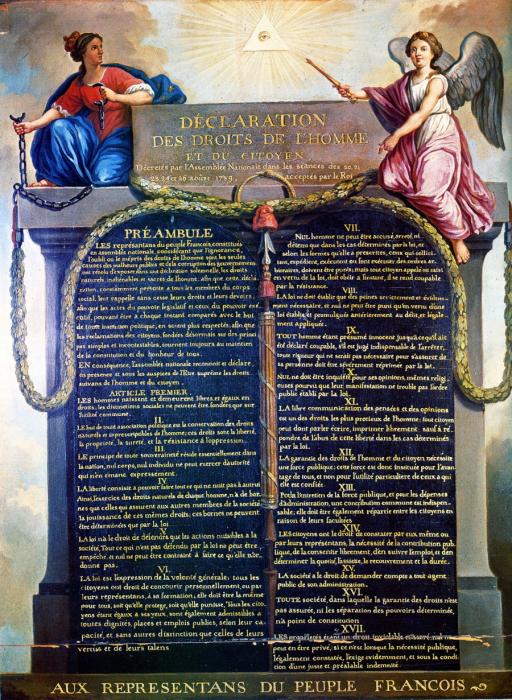 DÉCLARATION
DES DROITS DE L'HOMME
ET DU CITOYEN
Décretés par l'Assemblée Nationale dans les séances des 20, 21
23, 24 et 26 août 1789, acceptés par le Roi
PRÉAMBULE
LES représentans du peuple François, constitués
en assemblée nationale, considérant que l'ignorance,
l'oubli ou le mépris des droits de l'homme sont les seules
causes des malheurs publics et de la corruption des gouvernemens,
ont résolu d'exposer dans une déclaration solemnelle, les droits
naturels, inaliénables et sacrés de l'homme; afin que cette décla-
ration, constamment présente a tous les membres du corps
social, leur rappelle sans cesse leurs droits et leurs devoirs;
afin que les actes du pouvoir législatif et ceux du pouvoir exé-
cutif, pouvant être à chaque instant comparés avec le but
de toute institution politique, en soient plus respectés; afin que
les réclamations des citoyens, fondées désormais sur des princi-
pes simples et incontestables, tournent toujours au maintien
de la constitution et du bonheur de tous.
EN conséquence, l'assemblée nationale reconnoit et déclare,
en presence et sous les auspices de l'Etre suprême les droits
suivans de l'homme et du citoyen.
ARTICLE PREMIER.
LES hommes naissent et demeurent libres et égaux en
droits. les distinctions sociales ne peuvent être fondées que sur
l'utilité commune.
II.
LE but de toute association politique est la conservation des droits
naturels et imprescriptibles de l'homme; ces droits sont la liberté,
la propriété, la sureté, et la résistance à l'oppression.
III.
LE principe de toute souveraineté réside essentiellement dans
la nation, nul corps, nul individu ne peut exercer d'autorité
qui n'en émane expressément.
IV.
LA liberté consiste a pouvoir faire tout ce qui ne nuit pas à autrui.
Ainsi, l'exercice des droits naturels de chaque homme, n'a de bor-
nes que celles qui assurent aux autres membres de la société
la jouissance de ces mêmes droits; ces bornes ne peuvent
être déterminées que par la loi.
V.
LA loi n'a le droit de défendre que les actions nuisibles a la
société. Tout ce qui n'est pas défendu par la loi ne peut être
empêché, et nul ne peut être contraint à faire ce qu'elle n'or-
donne pas.
VI.
LA loi est l'expression de la volonté générale; tous les
citoyens ont droit de concourir personnellement, ou par
leurs représentans, à sa formation; elle doit être la même
pour tous, soit qu'elle protege, soit qu'elle punisse. Tous les cito-
yens étant égaux a ses yeux, sont également admissibles a
toutes dignités, places et emplois publics, selon leur ca-
pacité, et sans autres distinction que celles de leurs
vertus et de leurs talens.
VII.
NUL homme ne peut être accusé, arreté, ni
détenu que dans les cas déterminés par la loi, et
selon les formes qu'elle a prescrites. ceux qui sollici-
tent, expédient, exécutent ou font exécuter des ordres ar-
bitraires, doivent être punis; mais tout citoyen appelé ou saisi
en vertu de la loi, doit obéir a l'instant, il se rend coupable
par la résistance.
VIII.
LA loi ne doit établir que des peines strictement et évidem-
ment nécessaire, et nul ne peut être puni qu'en vertu d'une
loi établie et promulguée antérieurement au délit, et légale-
ment appliquée.
IX.
TOUT homme étant présumé innocent jusqu'a ce qu'il ait
été déclaré coupable, s'il est jugé indispensable de l'arrêter,
toute rigueur qui ne serait pas nécessaire pour s'assurer de
sa personne doit être sévèrement réprimée par la loi.
X.
NUL ne doit être inquiété pour ses opinions, mêmes religi-
euses pourvu que leur manifestation ne trouble pas l'ordre
public établi par la loi.
XI.
LA libre communication des pensées et des opinions
est un des droits les plus precieux de l'homme: tout citoyen
peut donc parler écrire, imprimer librement: sauf a ré-
pondre de l'abus de cette liberté dans les cas déterminés
par la loi.
XII.
LA garantie des droits de l'homme et du citoyen nécessite
une force publique: cette force est donc instituée pour l'avan-
tage de tous, et non pour l'utilité particuliere de ceux a qui
elle est confiée.
XIII.
Pour l'entretien de la force publique, et pour les dépenses
d'administration, une contribution commune est indispen-
sable: elle doit être également répartie entre les citoyens en
raison de leurs facultées.
XIV.
LES citoyens ont le droit de constater par eux même ou
par leurs représentans, la nécessité de la contribution pub-
lique, de la consentir librement, d'en suivre l'emploi, et d'en
déterminer la quotité, l'assiette, le recouvrement et la durée.
XV.
LA société a le droit de demander compte a tout agent
public de son administration.
XVI.
TOUTE société, dans laquelle la garantie des droits n'est
pas assurée, ni les séparation des pouvoirs déterminée,
n'a point de constitution.
XVII.
LES propriétés étant un droit inviolable et sacré, nul ne
peut en être privé, si ce n'est lorsque la nécessité publique,
légalement constatée, l'exige évidemment, et sous la condi-
tion d'une juste et préalable indemnité.
AUX REPRESENTANS DU PEUPLE FRANCOIS